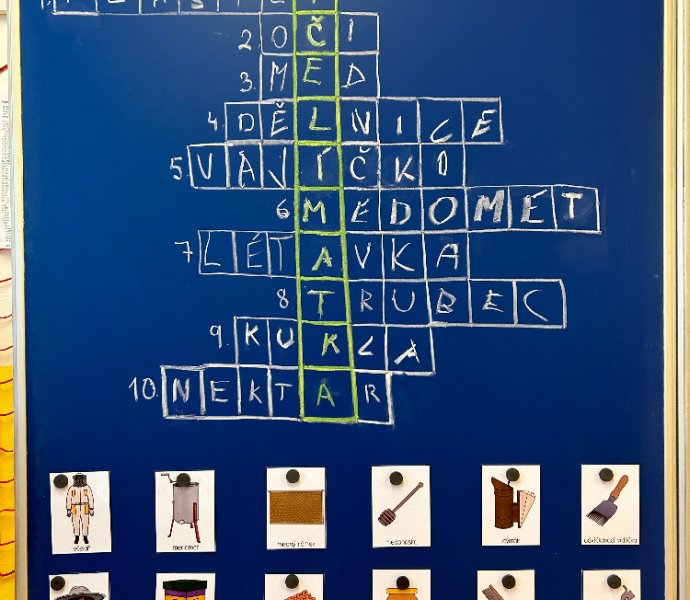 2. OČI
3. MED
4. DĚLNICE
5. VAJÍČKO
6 MEDOMET
7 LÉTAVKA
8 TRUBEC
9. KUKLA
10. NEKTAR
včelař
medomet
medný rámek
dýmák
odvíčkovací vidlička